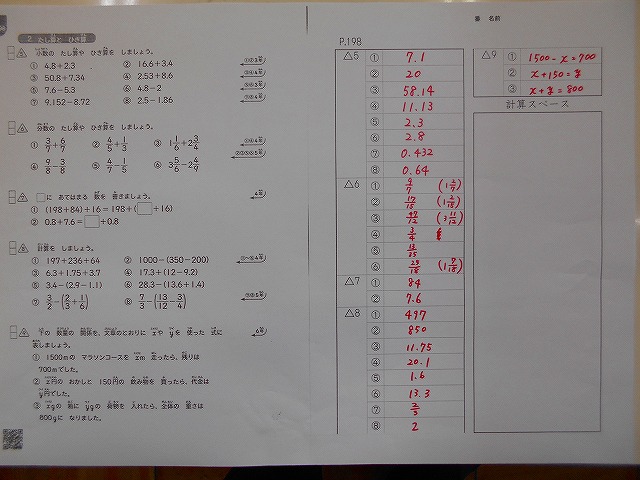 2 たし算と ひき算
5 小数の たし算や ひき算を しましょう。
① 4.8+2.3 ② 16.6+3.4
③ 50.8+7.34 ④ 2.53+8.6
⑤ 7.6−5.3 ⑥ 4.8−2
⑦ 9.152−8.72 ⑧ 2.5−1.86
6 分数の たし算や ひき算を しましょう。
① 3/7+6/7 ② 4/5+1/3 ③ 1 1/6+2 3/4
④ 9/8−3/8 ⑤ 4/7−1/5 ⑥ 3 5/6−2 4/9
7 □に あてはまる 数を 書きましょう。
① (198+84)+16=198+(□+16)
② 0.8+7.6=□+0.8
8 計算を しましょう。
① 197+236+64 ② 1000−(350−200)
③ 6.3+1.75+3.7 ④ 17.3+(12−9.2)
⑤ 3.4−(2.9−1.1) ⑥ 28.3−(13.6+1.4)
⑦ 3/2−(2/3+1/6) ⑧ 7/3−(13/12−3/4)
9 下の 数量の 関係を、文章のとおりに xや yを 使った 式に
表しましょう。
① 1500mの マラソンコースを xm 走ったら、残りは
700mでした。
② x円の おかしと 150円の 飲み物を 買ったら、代金は
y円でした。
③ xgの 箱に ygの 荷物を 入れたら、全体の 重さは
800gに なりました。
番 名前
P.198
△5 ① 7.1
② 20
③ 58.14
④ 11.13
⑤ 2.3
⑥ 2.8
⑦ 0.432
⑧ 0.64
△6 ① 9/7 (1 2/7)
② 17/15 (1 2/15)
③ 47/12 (3 11/12)
④ 3/4
⑤ 13/35
⑥ 25/18 (1 7/18)
△7 ① 84
② 7.6
△8 ① 497
② 850
③ 11.75
④ 20.1
⑤ 1.6
⑥ 13.3
⑦ 2/3
⑧ 2
△9 ① 1500−x=700
② x+150=y
③ x+y=800
計算スペース